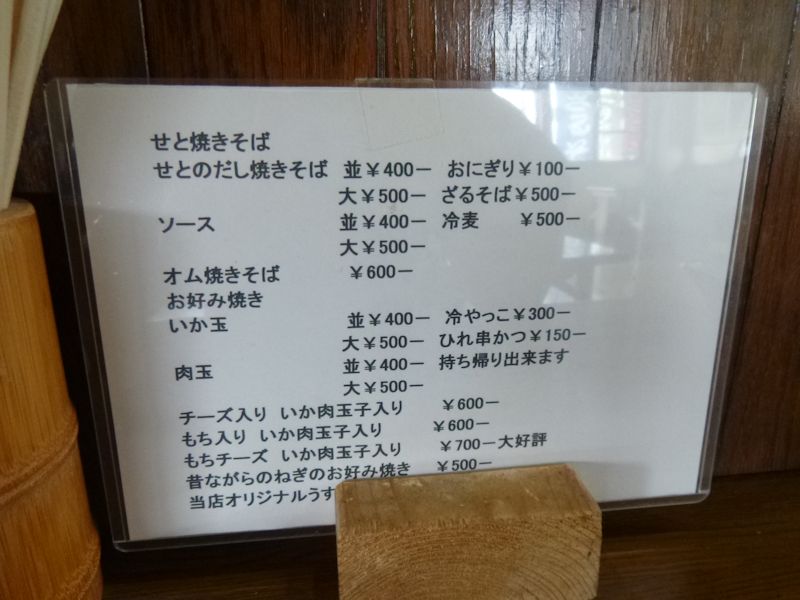 せと焼きそば
せとのだし焼きそば 並￥400－ おにぎり￥100－
大￥500－ ざるそば￥500－
ソース 並￥400－ 冷麦 ￥500－
大￥500－
オム焼きそば ￥600－
お好み焼き
いか玉 並￥400－ 冷やっこ￥300－
大￥500－ ひれ串かつ￥150－
肉玉 並￥400－ 持ち帰り出来ます
大￥500－
チーズ入り いか肉玉子入り ￥600－
もち入り いか肉玉子入り ￥600－
もちチーズ いか肉玉子入り ￥700－大好評
昔ながらのねぎのお好み焼き ￥500－
当店オリジナルうす